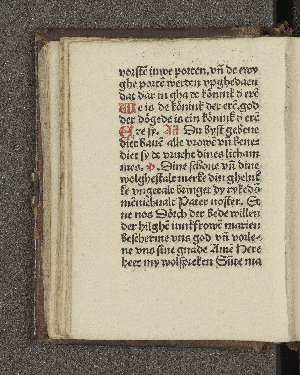 vorste inwe porten, vñ de ewy
ghe porte werden vpghedaen
dat dar in gha de konink d erē
We is de konink der erē god
der dogede is ein konink d erē
Ere sy. An Du byst gebene
diet bauē alle vrowē vñ benes
diet sy de vrucht dines licham
mes. Dine schone vñ dine
wolghestalt merke din ghelük
ke vngetalt bringet dy rykedō
mēnichualt Pater noster. Et
ne nos Dörch der bede willen
der hilghē iunkfrowē marien
bescherme vns god vñ vorle-
ne vns sine gnade Amē Here
here my wolspreken Sūte ma